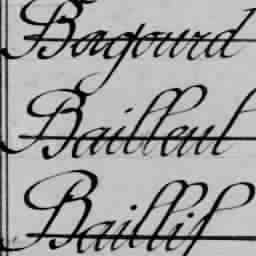 Bagourd
Bailleul
Baillif